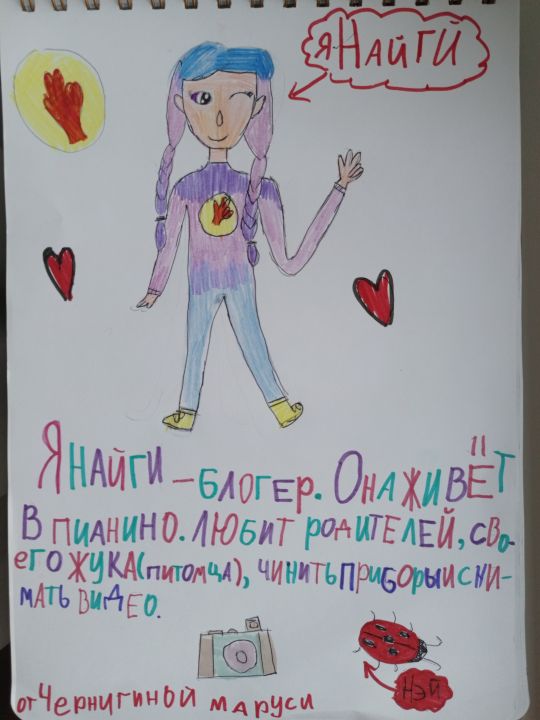 яНАЙГИ
ЯНАЙГИ – БЛОГЕР. ОНА ЖИВЁТ
В ПИАНИНО. ЛЮБИТ РОДИТЕЛЕЙ, СВО-
ЕГО ЖУКА(ПИТОМЦА), ЧИНИТЬ ПРИБОРЫ И СНИ-
МАТЬ ВИДЕО.
НЭЙ
от Чернигиной Маруси